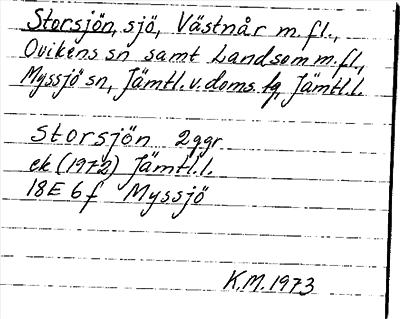 Storsjön, sjö, Västnår m.fl.,
Ovikens sn samt Landsom m.fl.,
Myssjö sn, Jämtl.v.doms.lg, Jämtl.l.
Storsjön 2ggr
ek (1972) Jämtl.l.
18E 6f Myssjö
K.M.1973